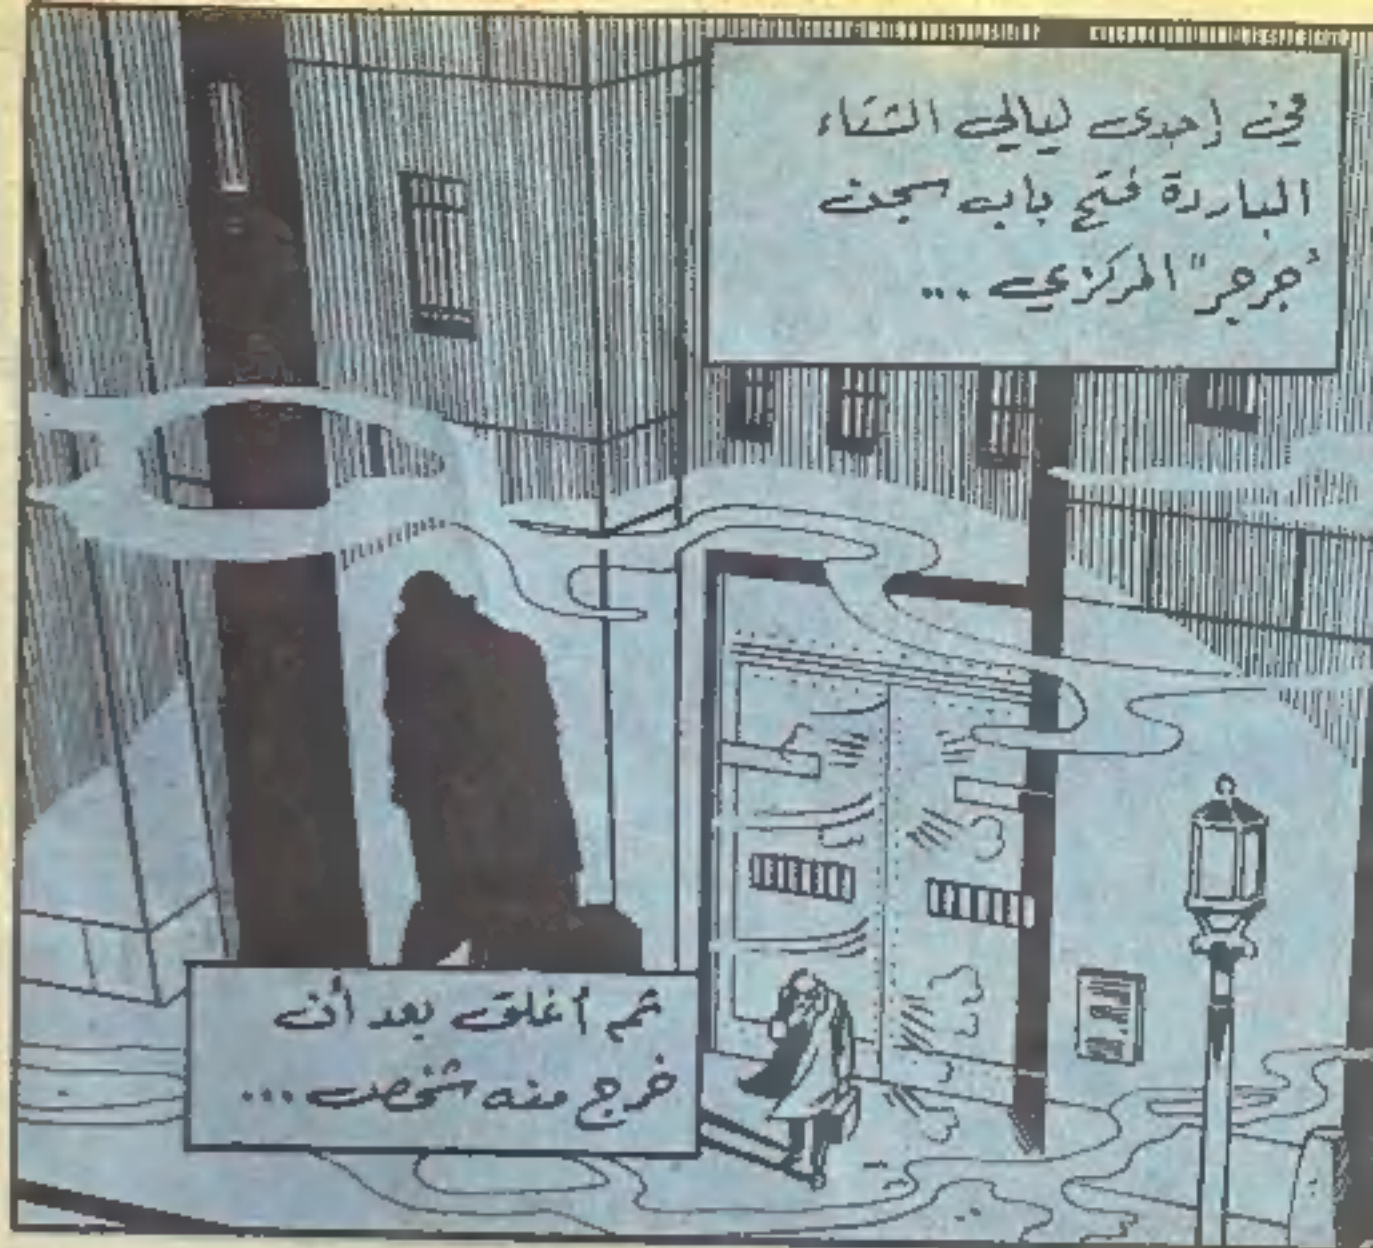 في إحدى ليالي الشتاء
الباردة فتح باب سجن
"جرجر" المركزي ...
ثم أغلق بعد أن
خرج منه شخص ...